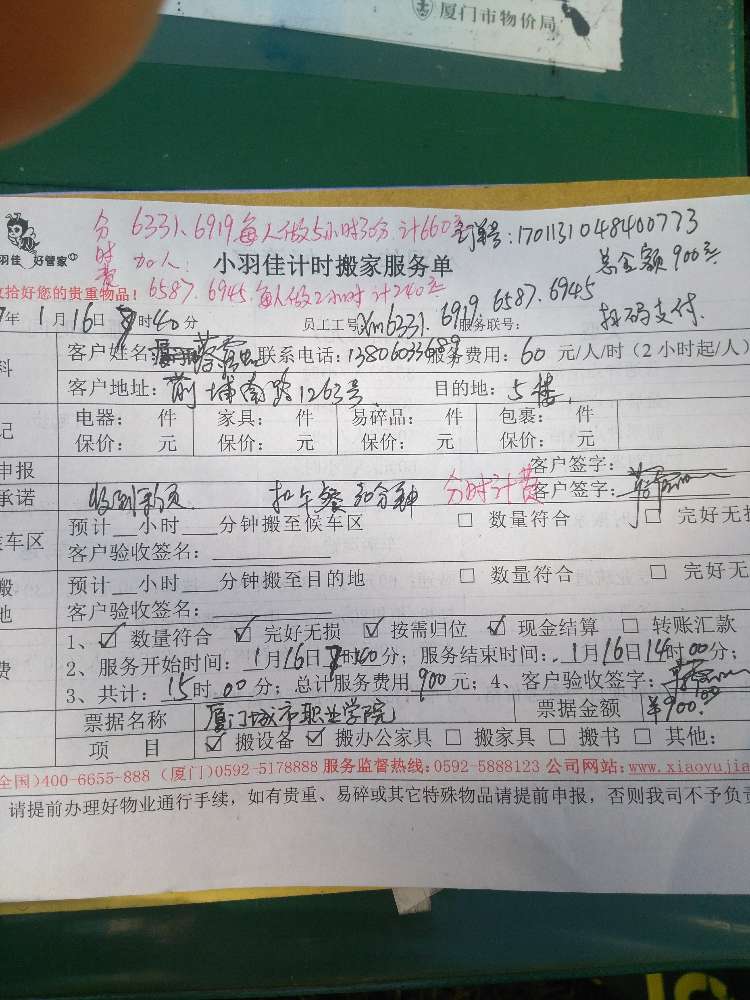 厦门市物价局
分时费 6331.6919.每人做5小时30分 计660元
订单号:1701131048400773
加人:
小羽佳计时搬家服务单
总金额900元
羽佳 好管家
收拾好您的贵重物品!
6587.6945.每人做2小时计240元
扫码支付.
年1月16日 时40分
员工工号 Xm6331.6919.6587.6945
服务联号:
客户姓名: 联系电话:13806033689 服务费用:60元/人/时(2小时起/人)
客户地址:前埔南路1263号 目的地:5楼.
电器: 件 家具: 件 易碎品: 件 包裹: 件
保价: 元 保价: 元 保价: 元 保价: 元
申报
客户签字:
承诺 扣午餐30分钟 分时计费 客户签字:
候车区 预计__小时___分钟搬至候车区 □ 数量符合 □ 完好无损
客户验收签名:
预计__小时___分钟搬至目的地 □ 数量符合 □ 完好无
客户验收签名:
1、☑ 数量符合 ☑ 完好无损 ☑ 按需归位 ☑ 现金结算 □ 转账汇款
费 2、服务开始时间:1月16日 时40分;服务结束时间:1月16日14时00分;
3、共计:15时00分;总计服务费用900元;4、客户验收签字:
票据名称 厦门城市职业学院 票据金额 ¥900.00
项 目 ☑ 搬设备 ☑ 搬办公家具 □ 搬家具 □ 搬书 □ 其他:
全国)400-6655-888 (厦门)0592-5178888 服务监督热线:0592-5888123 公司网站:www.xiaoyujia
请提前办理好物业通行手续,如有贵重、易碎或其它特殊物品请提前申报,否则我司不予负责